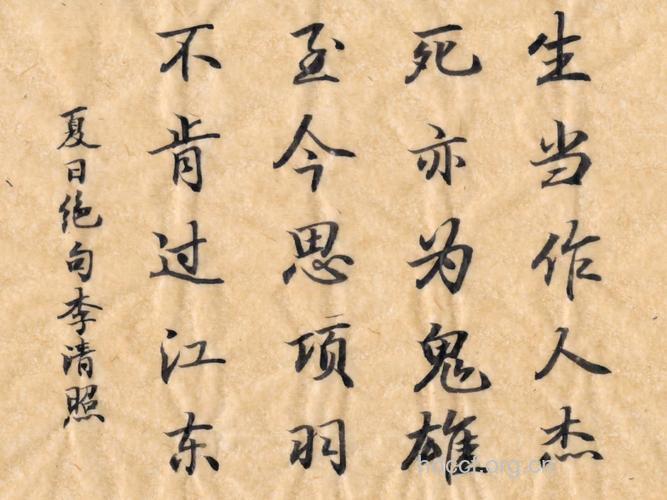 生当作人杰
死亦为鬼雄
至今思项羽
不肯过江东
夏日绝句李清照